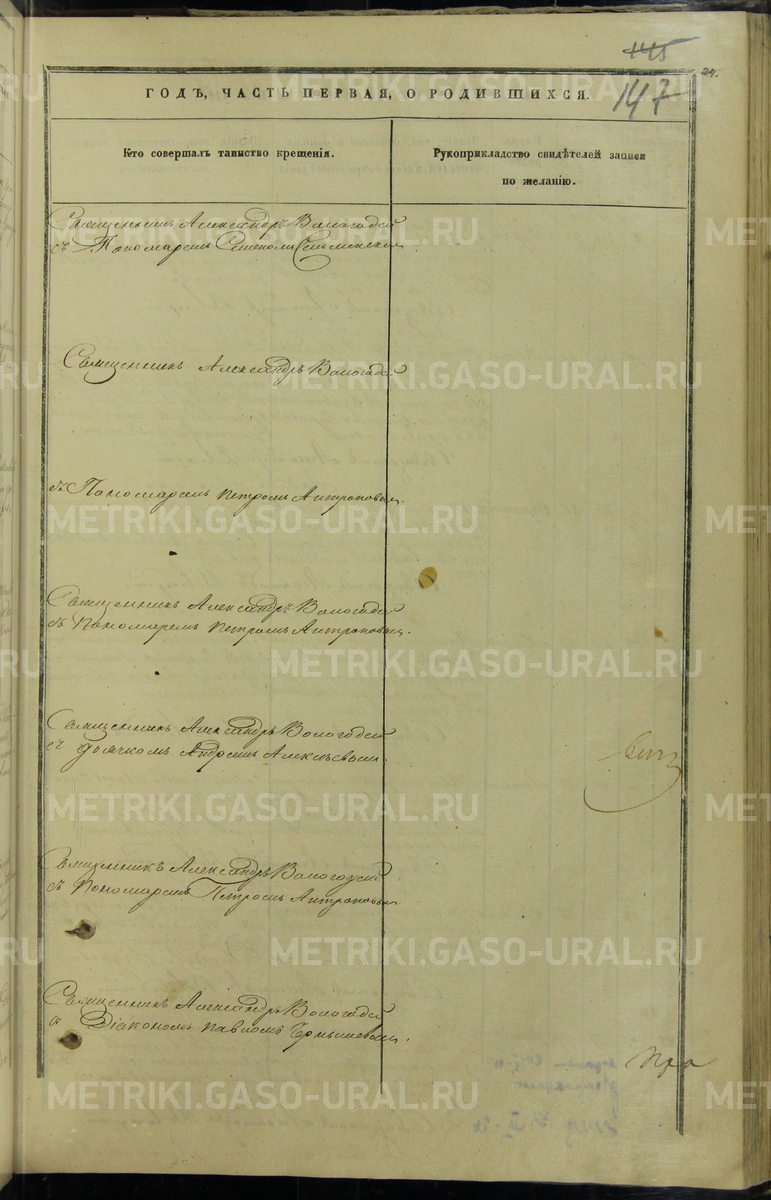 145
24.
147
ГОДЪ, ЧАСТЬ ПЕРВАЯ, О РОДИВШИХСЯ.
Кто совершалъ таинство крещенія.
Рукоприкладство свидѣтелей записи
по желанію.
Священникъ Александръ Вологодскій
съ Пономаремъ
Священникъ Александръ Вологодскій
съ Пономаремъ Петромъ Антроповымъ.
Священникъ Александръ Вологодскій
съ Пономаремъ Петромъ Антроповымъ.
Священникъ Александръ Вологодскій
съ дьячкомъ Андреемъ Алексѣевымъ.
Священникъ Александръ Вологодскій
съ Пономаремъ Петромъ Антроповымъ.
Священникъ Александръ Вологодскій
съ Діакономъ Павломъ
METRIKI.GASO-URAL.RU